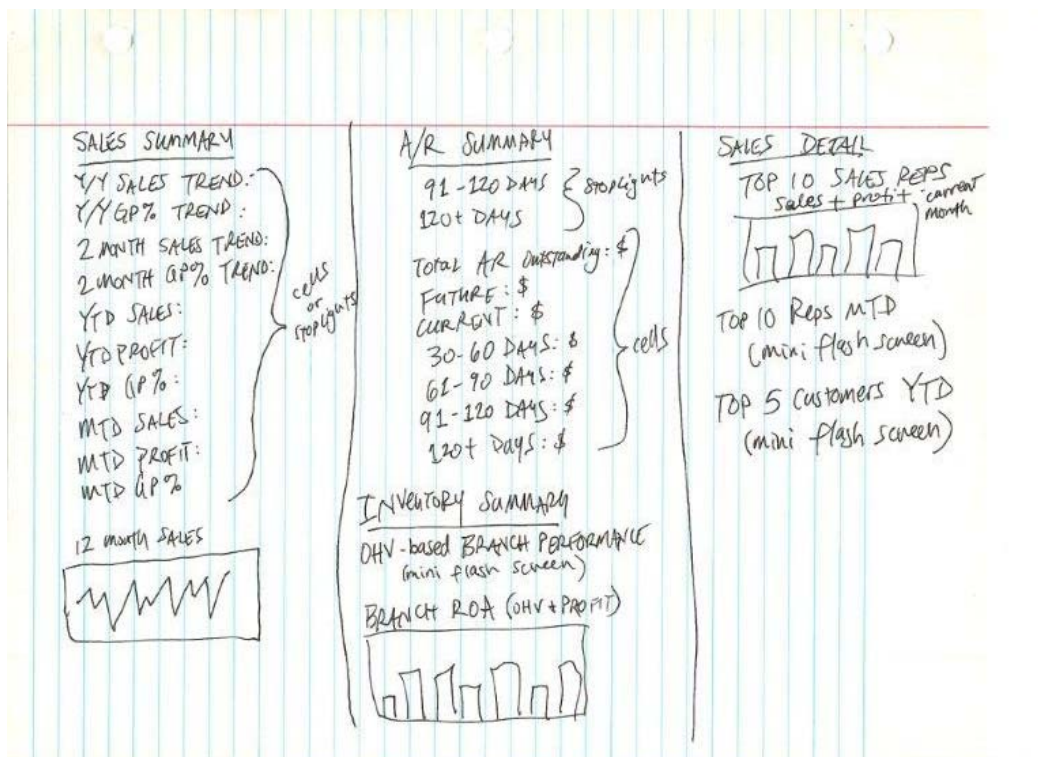 SALES SUMMARY
Y/Y SALES TREND:
Y/Y GP% TREND:
2 MONTH SALES TREND:
2 MONTH GP% TREND:
YTD SALES:
YTD PROFIT:
YTD GP%:
MTD SALES:
MTD PROFIT:
MTD GP%
cells
or
stoplights
12 month SALES
A/R SUMMARY
91-120 DAYS
120+ DAYS
stoplights
Total AR Outstanding: $
FUTURE: $
CURRENT: $
30-60 DAYS: $
61-90 DAYS: $
91-120 DAYS: $
120+ DAYS: $
cells
INVENTORY SUMMARY
OHV-based BRANCH PERFORMANCE
(mini flash screen)
BRANCH ROA (OHV + PROFIT)
SALES DETAIL
TOP 10 SALES REPS
Sales + profit, current
month
TOP 10 Reps MTD
(mini flash screen)
TOP 5 Customers YTD
(mini flash screen)